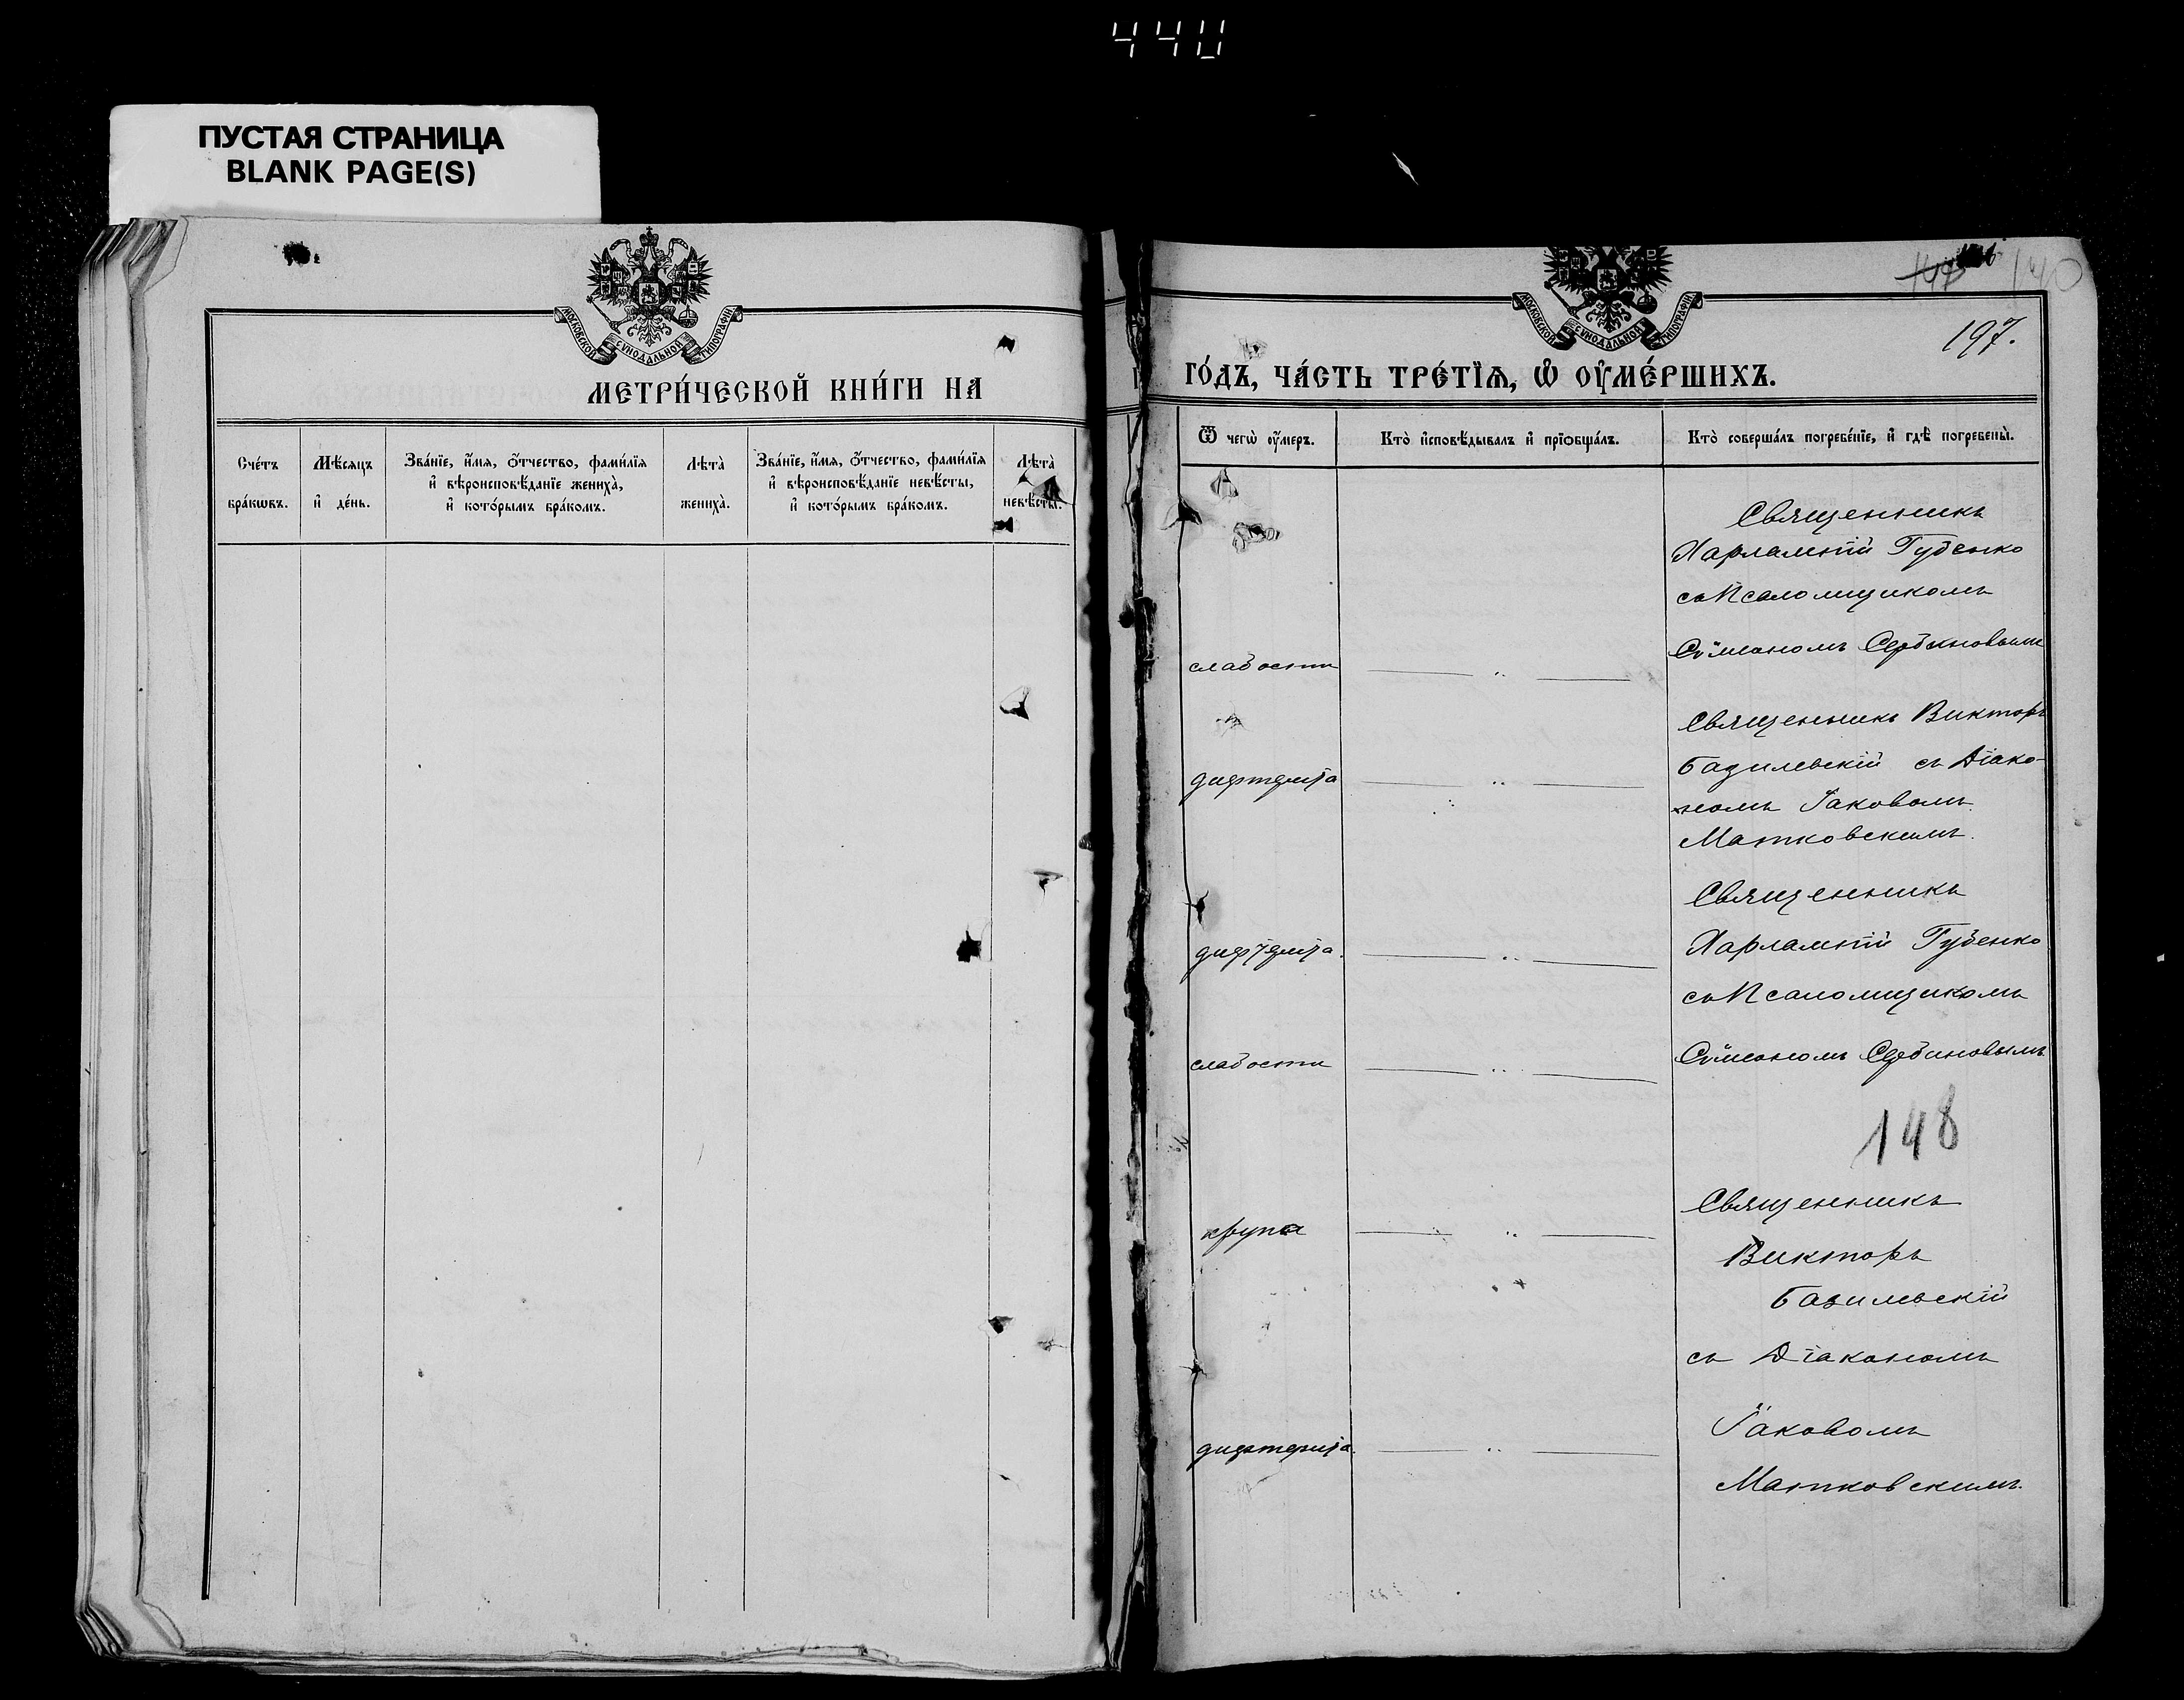 440
ПУСТАЯ СТРАНИЦА
BLANK PAGE(S)
МОСКОВСКОЙ СѴНОДАЛЬНОЙ ТИПОГРАФІИ
МЕТРИ́ЧЕСКОЙ КНИ́ГИ НА
Сче́тъ бра́кѡвъ.
Мѣ́сяцъ и҆ де́нь.
Зва́нїе, и҆́мя, ѻ҆́тчество, фами́лїя
и҆ вѣроисповѣ́данїе жениха̀,
и҆ кото́рымъ бра́комъ.
Лѣта̀ жениха̀.
Зва́нїе, и҆́мя, ѻ҆́тчество, фами́лїя
и҆ вѣроисповѣ́данїе невѣ́сты,
и҆ кото́рымъ бра́комъ.
Лѣта̀ невѣ́сты.
140
МОСКОВСКОЙ СѴНОДАЛЬНОЙ ТИПОГРАФІИ
197.
ГО́ДЪ, ЧА́СТЬ ТРЕ́ТЇѦ, Ѽ ОУ҆МЕ́РШИХЪ.
Ѿ чегѡ̀ оу҆́меръ.
Кто̀ и҆сповѣ́дывалъ и҆ прїѡбща́лъ.
Кто̀ соверша́лъ погребе́нїе, и҆ гдѣ̀ погребены̀.
Священникъ
Харлампій Губенко
съ Псаломщикомъ
Сѵмеономъ Сербиновымъ
слабости
Священникъ Викторъ
дифтерита
Базилевскій съ Діако-
номъ Іаковомъ
Матковскимъ.
Священникъ
Харлампій Губенко
дифтерита.
съ Псаломщикомъ
Сѵмеономъ Сербиновымъ
слабости
148
Священникъ
крупа
Викторъ
Базилевскій
съ Діакономъ
Іаковомъ
дифтерита.
Матковскимъ.